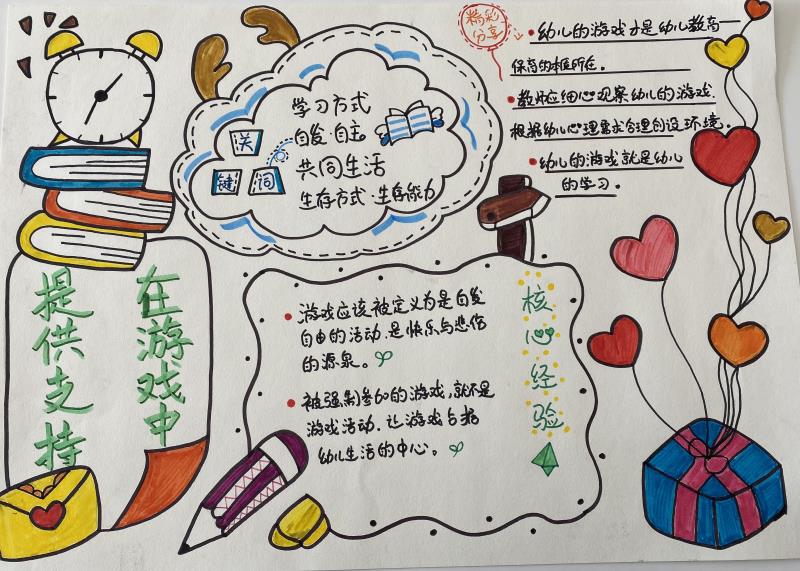 在游戏中
提供支持
关
键 词
学习方式
自发·自主
共同生活
生存方式·生存能力
精彩
分享
幼儿的游戏才是幼儿教育一
保育的框所在。
教师应细心观察幼儿的游戏.
根据幼儿心理需求合理创设环境。
幼儿的游戏就是幼儿
的学习。
核心经验
游戏应该被定义为是自发
自由的活动.是快乐与悲伤
的源泉。
被强制参加的游戏,就不是
游戏活动.让游戏占据
幼儿生活的中心。